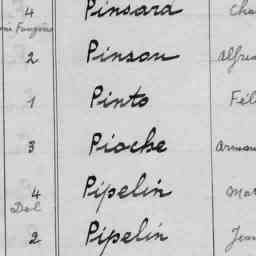 4 Pinsard Cha
2 Pinson Alfre
1 Pinto Féli
3 Pioche Arman
4 Pipelin Mar
Del
2 Pipelin Jean